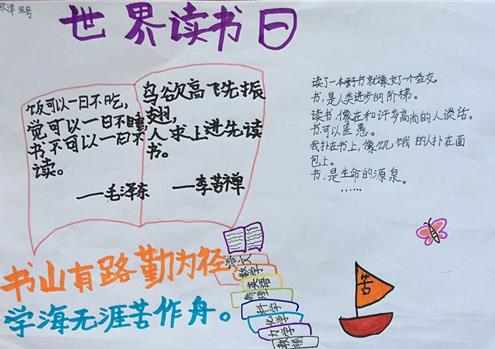 世界读书日
饭可以一日不吃,
觉可以一日不睡,
书不可以一日不
读。
——毛泽东
鸟欲高飞先振
翅,
人求上进先读
书。
——李苦禅
读了一本好书就像交了一个益友。
书,是人类进步的阶梯。
读书,像在和许多高尚的人谈话。
书可以医愚。
我扑在书上,像饥饿的人扑在面
包上。
书,是生命的源泉。
……
书山有路勤为径
学海无涯苦作舟。
语文
数学
英语
科学
苦